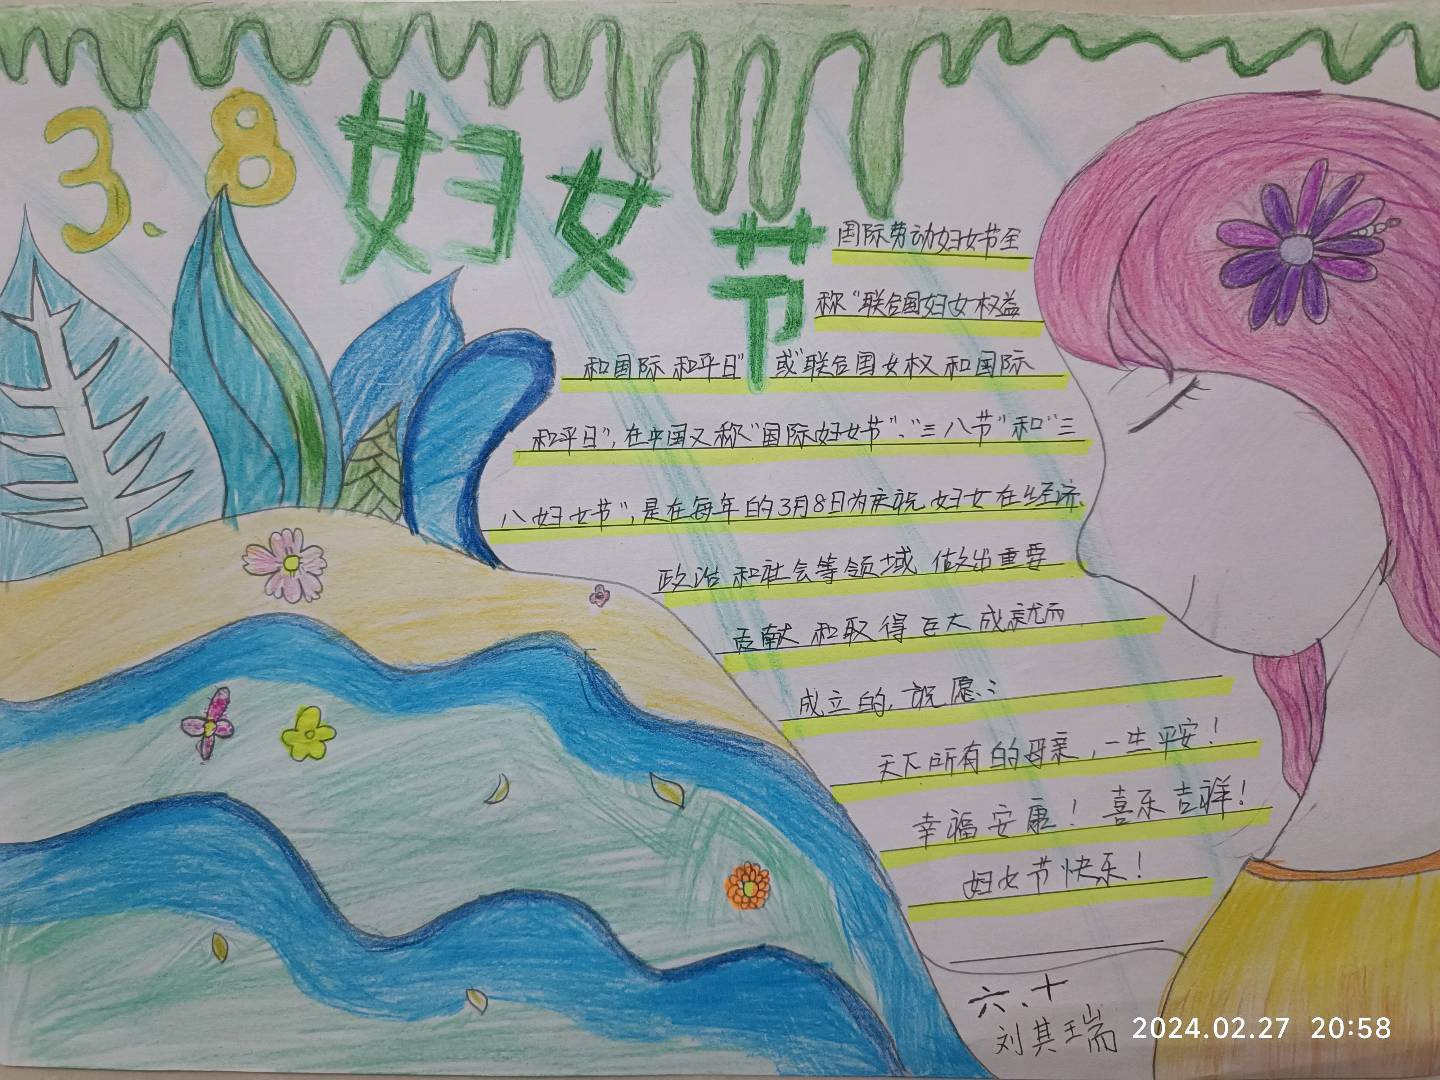 3.8
妇女节
国际劳动妇女节全
称"联合国妇女权益
和国际和平日"或"联合国女权和国际
和平日",在中国又称"国际妇女节"、"三八节"和"三
八妇女节",是在每年的3月8日为庆祝妇女在经济、
政治和社会等领域做出重要
贡献和取得巨大成就而
成立的,祝愿:
天下所有的母亲,一生平安!
幸福安康!喜乐吉祥!
妇女节快乐!
六.十
刘其瑞
2024.02.27 20:58